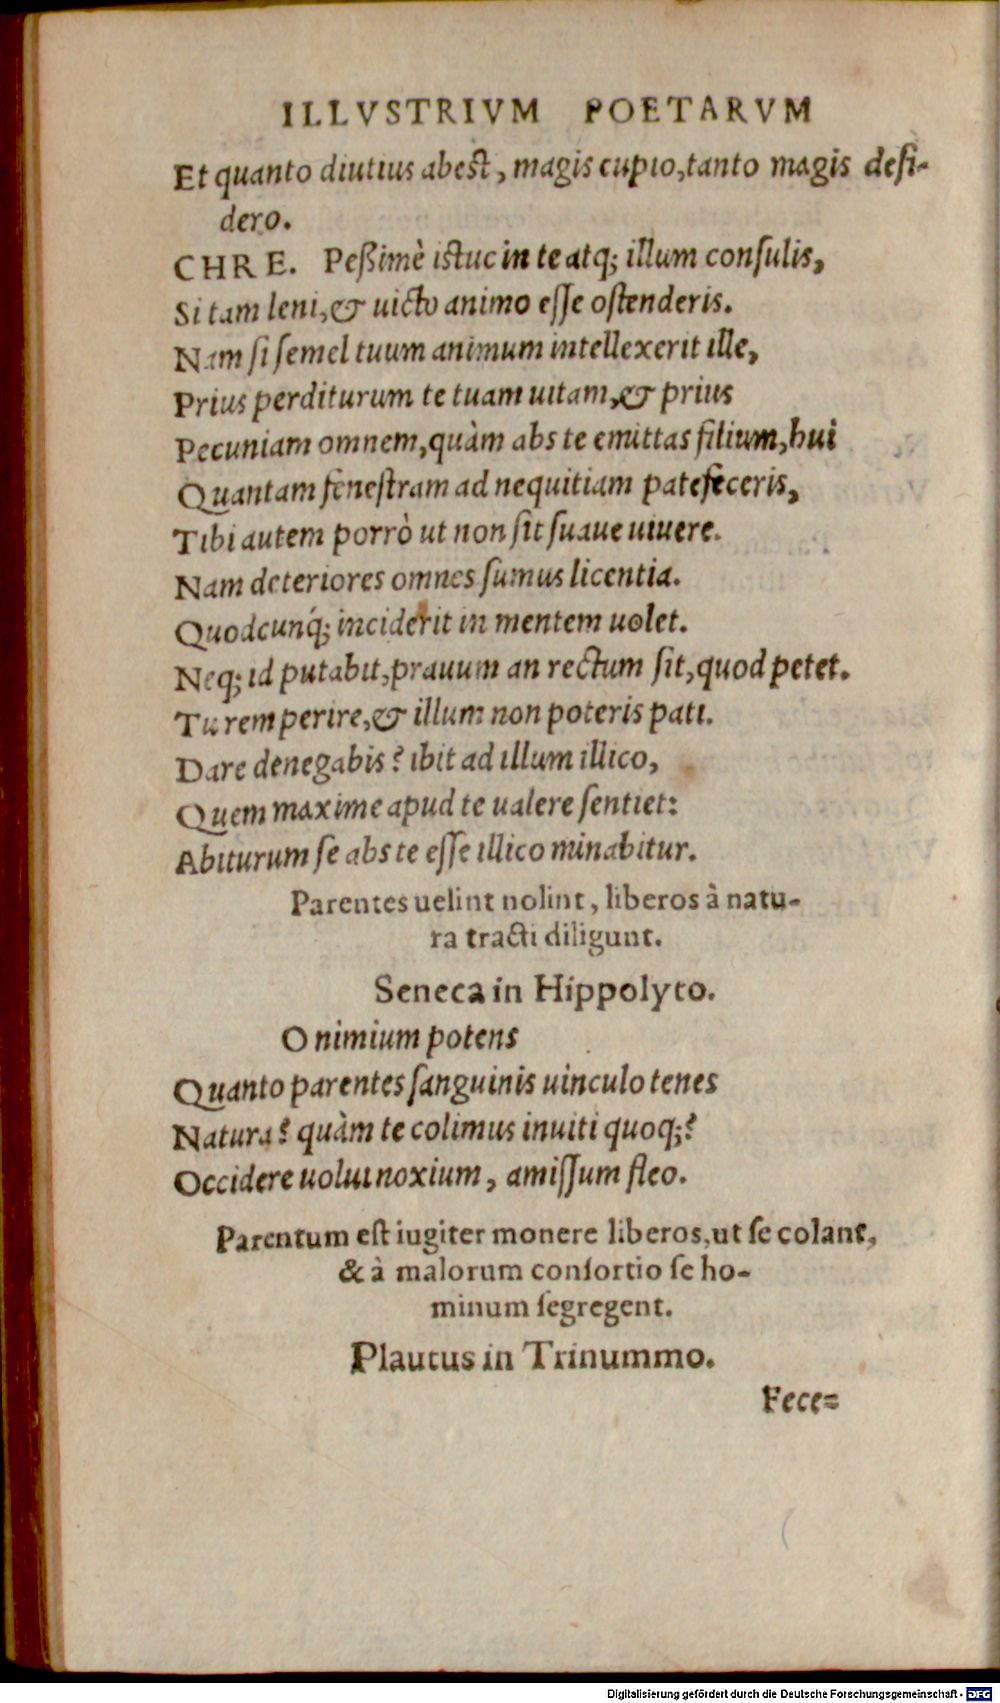 ILLVSTRIVM POETARVM
Et quanto diutius abest, magis cupio, tanto magis desi-
dero.
CHRE. Peßimè istuc in te atq; illum consulis,
Si tam leni, & uicto animo esse ostenderis.
Nam si semel tuum animum intellexerit ille,
Prius perditurum te tuam uitam, & prius
Pecuniam omnem, quàm abs te emittas filium, hui
Quantam fenestram ad nequitiam patefeceris,
Tibi autem porrò ut non sit suaue uiuere.
Nam deteriores omnes sumus licentia.
Quodcunq́; inciderit in mentem uolet.
Neq; id putabit, prauum an rectum sit, quod petet.
Tu rem perire, & illum non poteris pati.
Dare denegabis? ibit ad illum illico,
Quem maxime apud te ualere sentiet:
Abiturum se abs te esse illico minabitur.
Parentes uelint nolint, liberos à natu-
ra tracti diligunt.
Seneca in Hippolyto.
O nimium potens
Quanto parentes sanguinis uinculo tenes
Natura? quàm te colimus inuiti quoq;?
Occidere uolui noxium, amissum fleo.
Parentum est iugiter monere liberos, ut se colant,
& à malorum consortio se ho-
minum segregent.
Plautus in Trinummo.
Fece=
Digitalisierung gefördert durch die Deutsche Forschungsgemeinschaft - DFG